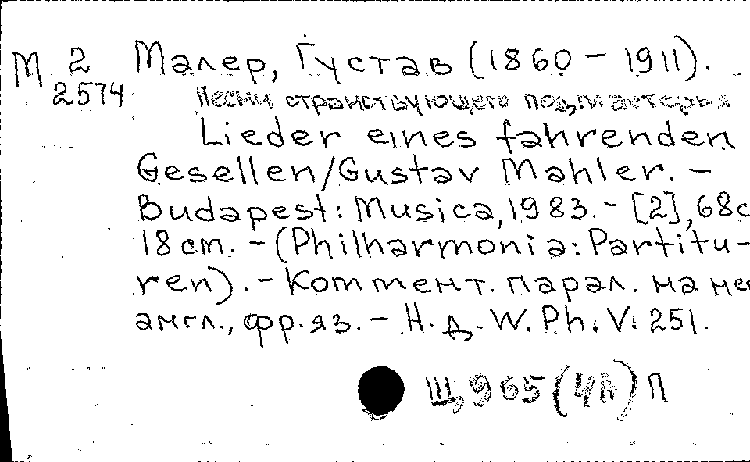 М 2 Малер, Густав (1860 - 1911).
2574 Песни странствующего подмастерья
Lieder eines fahrenden
Gesellen/Gustav Mahler. -
Budapest: Musica, 1983. - [2], 68с
18cm. - (Philharmonia: Partitu-
ren). - Коммент. парал. на не
англ., фр. яз. - Н. д. W. Ph. V. 251.
Щ965(4А)П